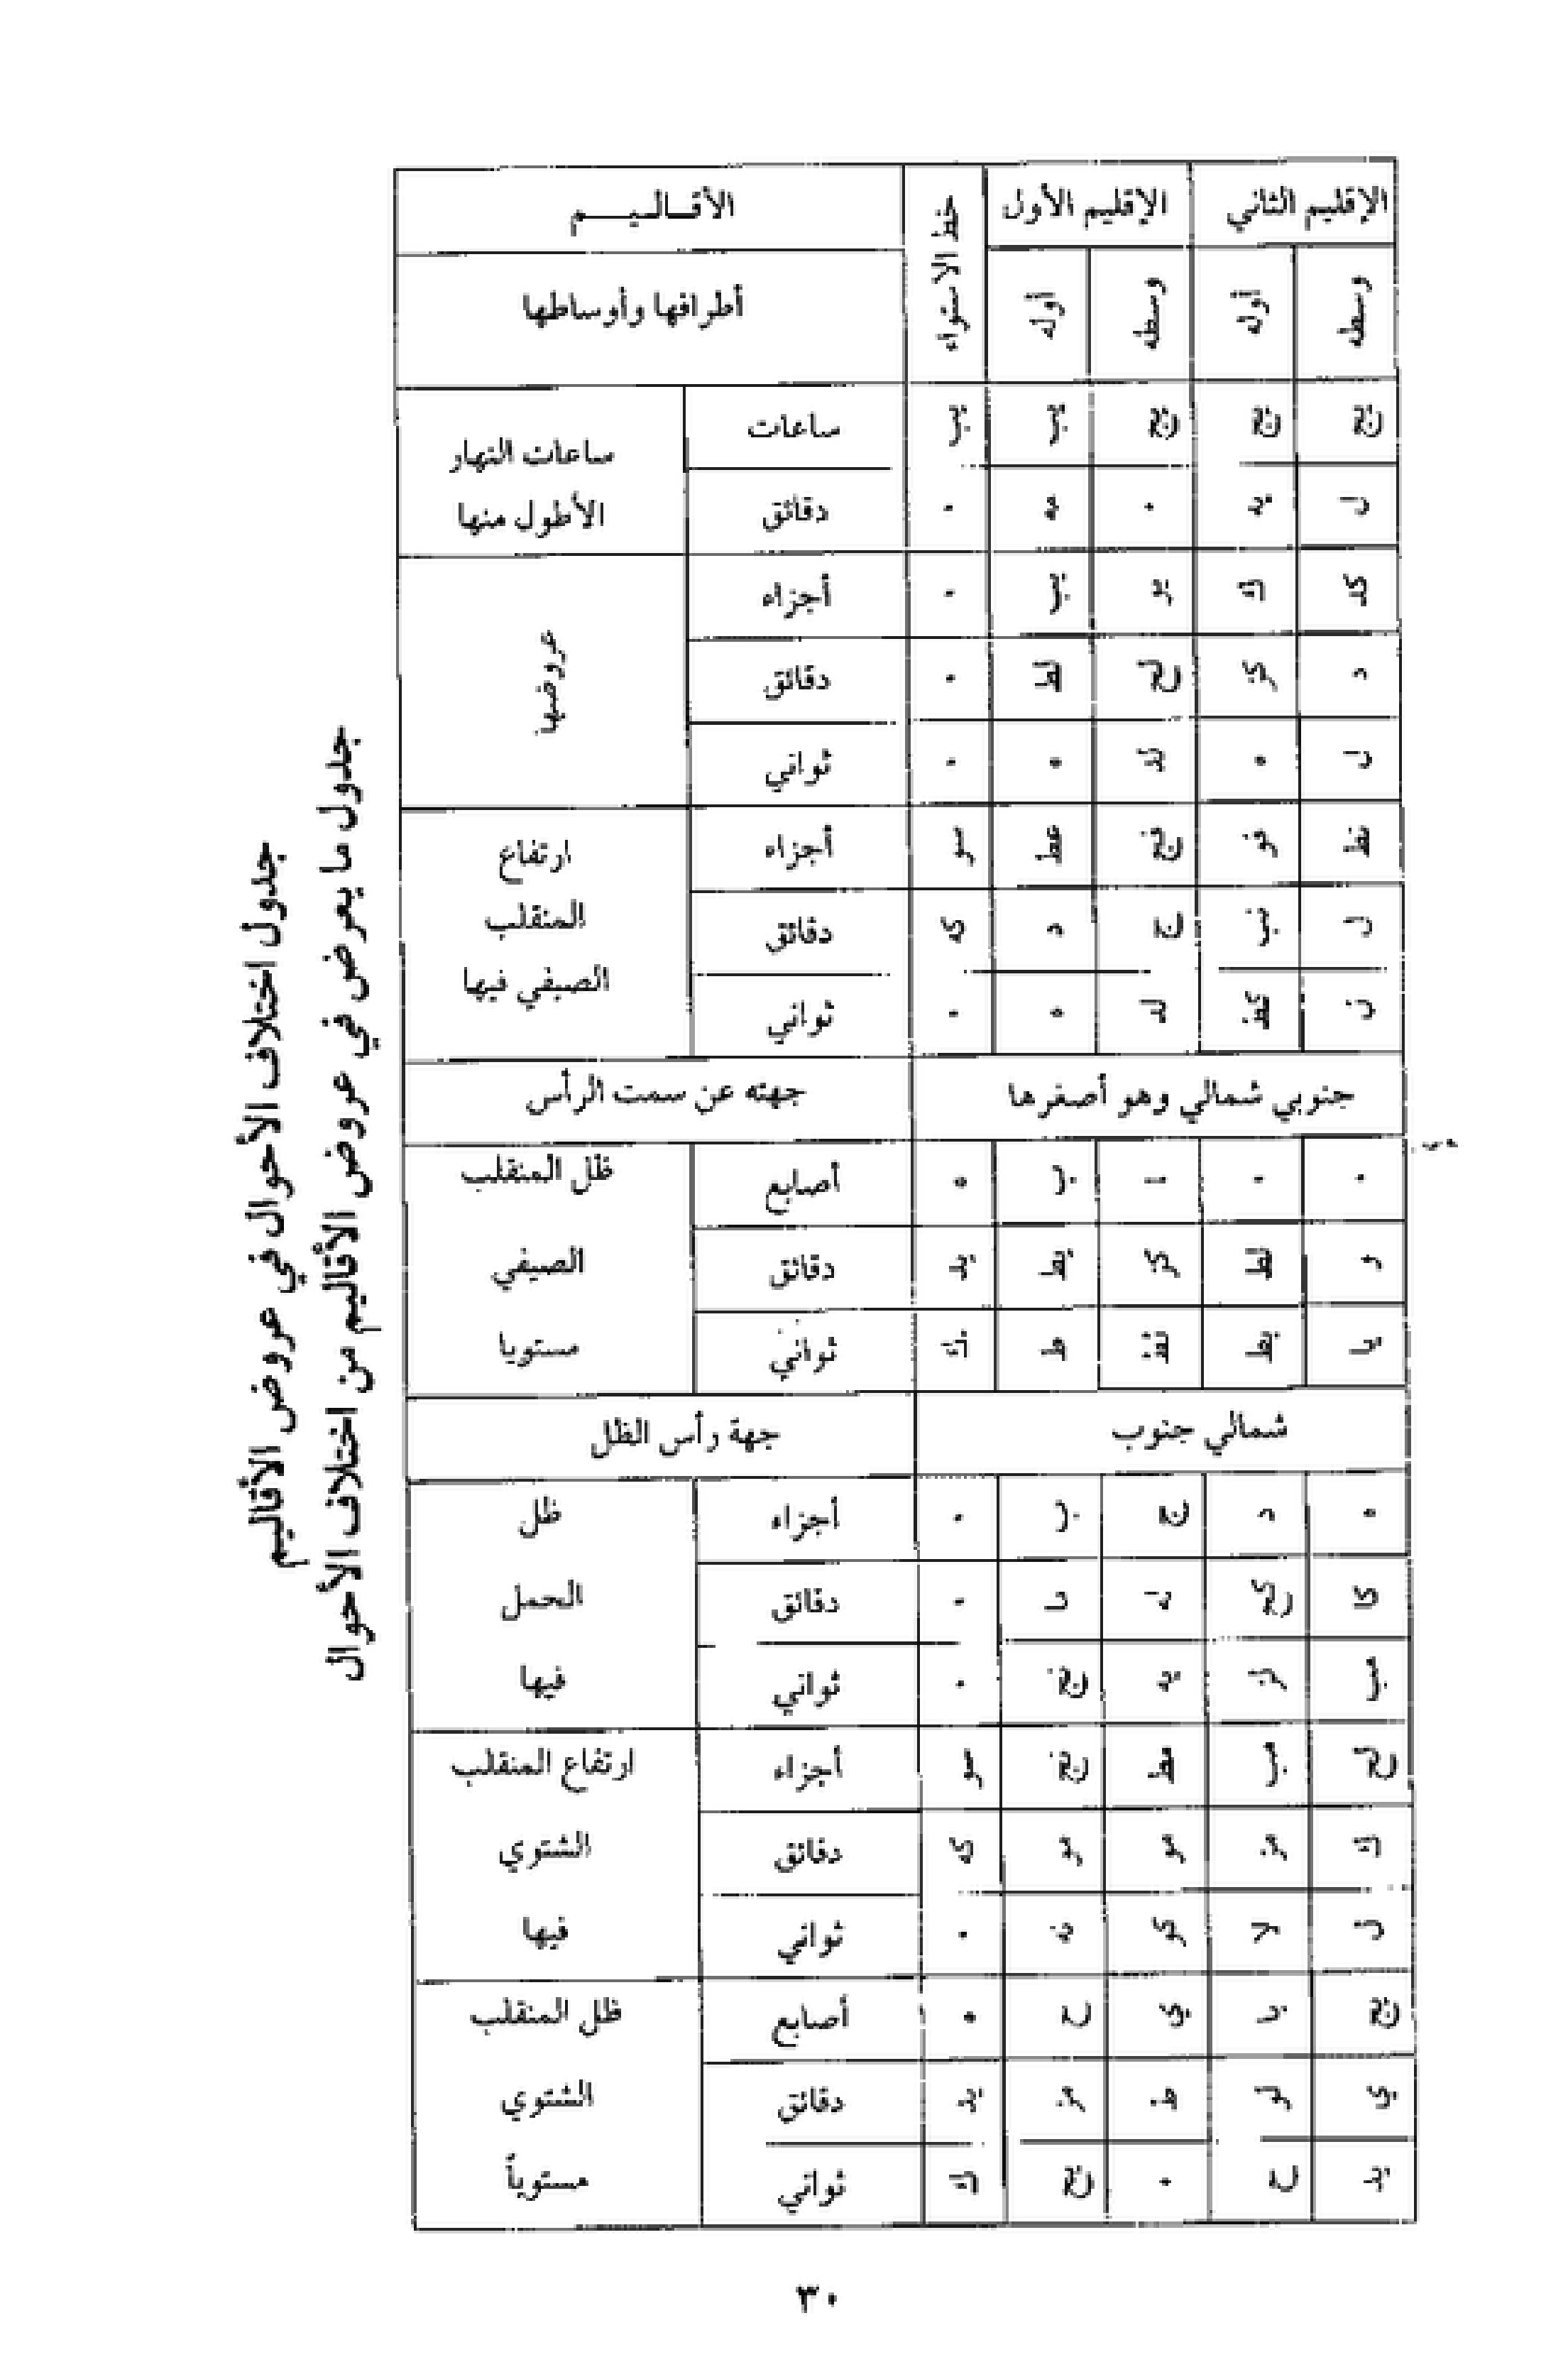 جدول اختلاف الأحوال في عروض الأقاليم
جدول ما يعرض في عروض الأقاليم من اختلاف الأحوال
الأقــالـيـــم خط الاستواء الإقليم الأول الإقليم الثاني
أطرافها وأوساطها أوله وسطه أوله وسطه
ساعات النهار الأطول منها ساعات يب يب يج يج يج
دقائق ٠ مه ٠ يه ل
عروضها أجزاء ٠ يب يو ك كد
دقائق ٠ لط لح كز د
ثواني ٠ ه لد ه ل
ارتفاع المنقلب الصيفي فيها أجزاء سو عط فج فو نط
دقائق كه د ج نب ل
ثواني ٠ ه لد كط ن
جهته عن سمت الرأس جنوبي شمالي وهو أصغرها
ظل المنقلب الصيفي مستويا أصابع ه ب ا ٠ ٠
دقائق يد يط كز لط و
ثواني ك ط نط يط يا
جهة رأس الظل شمالي جنوب
ظل الحمل فيها أجزاء ٠ ب ج د ه
دقائق ٠ ما له كح كا
ثواني ٠ نج يه لز مب
ارتفاع المنقلب الشتوي فيها أجزاء سو نج مط مب لح
دقائق كه مو مو مز ك
ثواني ٠ نه كو لا ن
ظل المنقلب الشتوي مستوياً أصابع ه ح ي يا يج
دقائق يد مز ط لو ي
ثواني ك يح ٠ ح يد
٣٠